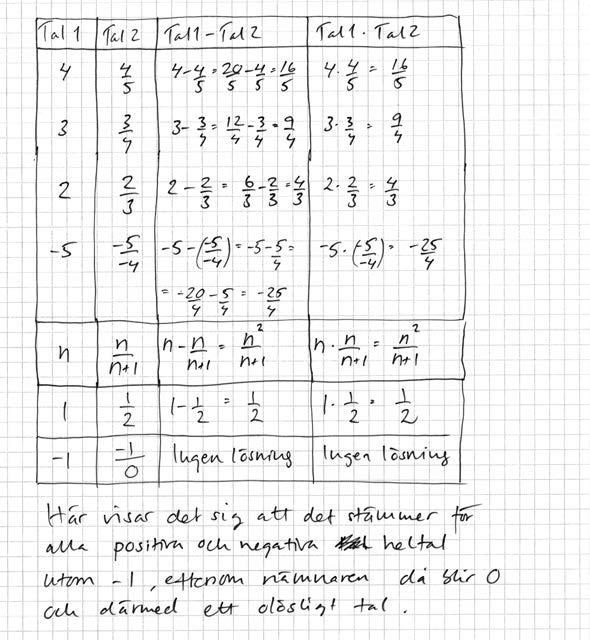 Tal 1 | Tal 2 | Tal1-Tal2 | Tal1·Tal2
4 | 4/5 | 4-4/5=20/5-4/5=16/5 | 4·4/5=16/5
3 | 3/4 | 3-3/4=12/4-3/4=9/4 | 3·3/4=9/4
2 | 2/3 | 2-2/3=6/3-2/3=4/3 | 2·2/3=4/3
-5 | -5/-4 | -5-(-5/-4)=-5-5/4= | -5·(-5/-4)=-25/4
=-20/4-5/4=-25/4
n | n/n+1 | n-n/n+1=n²/n+1 | n·n/n+1=n²/n+1
1 | 1/2 | 1-1/2=1/2 | 1·1/2=1/2
-1 | -1/0 | Ingen lösning | Ingen lösning
Här visar det sig att det stämmer för
alla positiva och negativa heltal
utom -1, eftersom nämnaren då blir 0
och därmed ett olösligt tal.